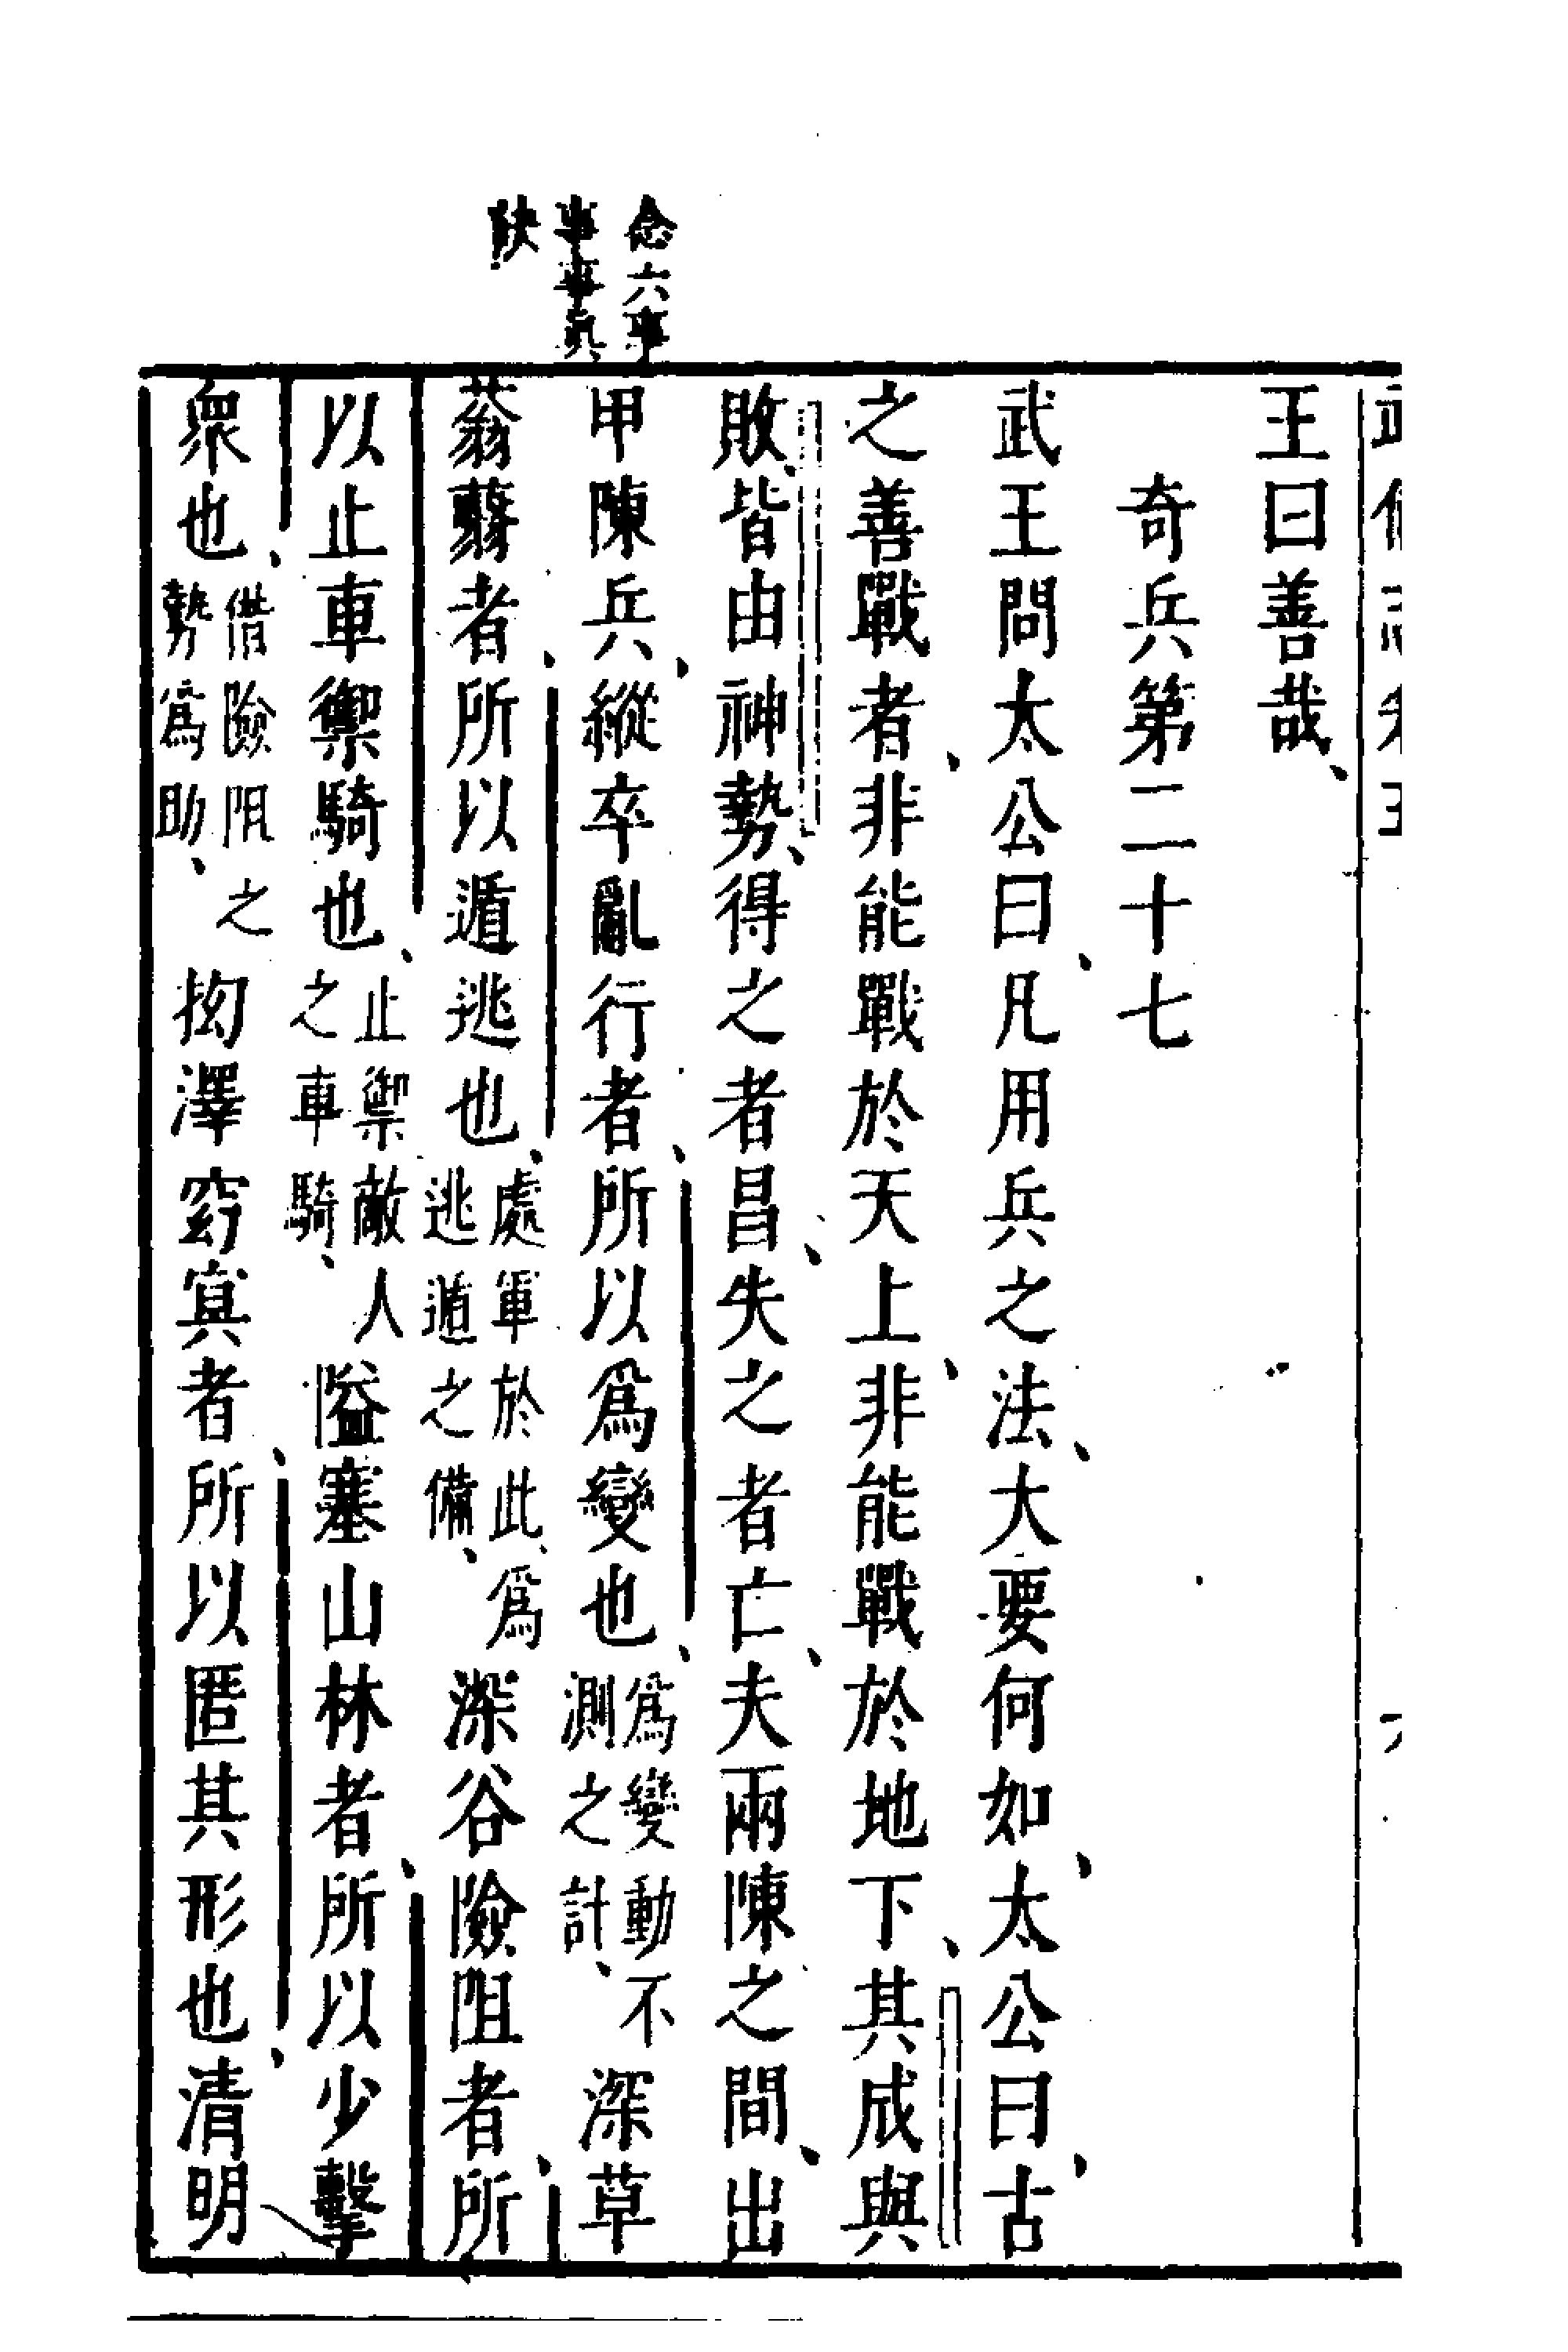 王曰善哉
奇兵第二十七
武王問太公曰凡用兵之法大要何如太公曰古
之善戰者非能戰於天上非能戰於地下其成與
敗皆由神勢得之者昌失之者亡夫兩陳之間出
甲陳兵縱卒亂行者所以爲變也爲變動不測之計深草
蓊蘙者所以遁逃也處軍於此爲逃遁之備深谷險阻者所
以止車禦騎也止禦敵人之車騎隘塞山林者所以少擊
衆也借險阻之勢爲助坳澤窈冥者所以匿其形也清明
六事
事事